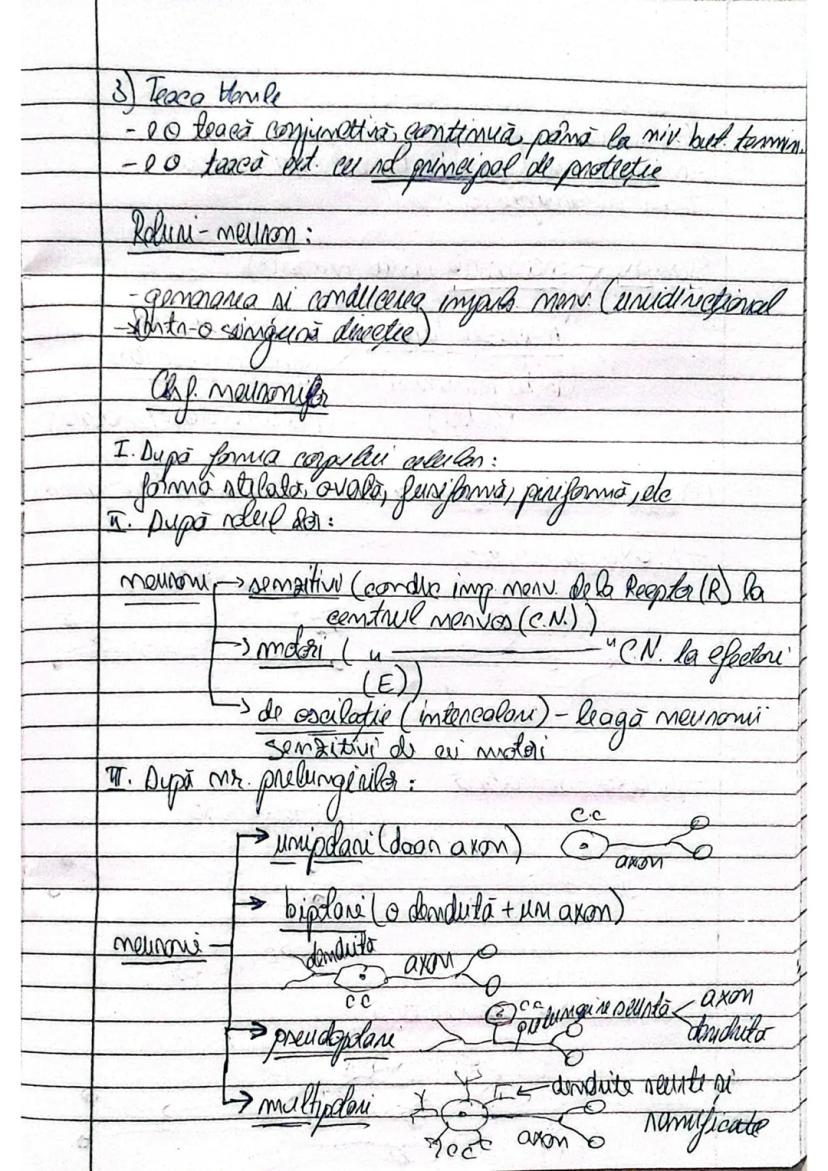 3) Teaca Henle
- e o teacă conjunctivă, continuă până la niv. but. termin.
- e o teacă ext. cu rol principal de protecție
Roluri-neuron:
- generarea si conducerea impuls nerv. (unidirecțional
→ într-o singură direcție)
Clsf. neuronilor
I. După forma corpului celular:
formă stelată, ovală, fusiformă, piriformă, etc
II. După rolul lor:
neuroni → senzitivi (conduc imp. nerv. de la Receptor (R) la
centrul nervos (C.N.))
→ motori ( " ——— " C.N. la efectori
(E))
→ de oscilație (intercalari) - leagă neuronii
senzitivi de cei motori
III. După nr. prelungirilor:
→ unipolari (doar axon)
c.c
axon
→ bipolari (o dendrită + un axon)
neuroni
dendrita axon
cc
→ pseudopolari
c.c. prelungire scurtă
axon
dendrita
→ multipolari
← dendrite scurte și
ramificate
cc axon